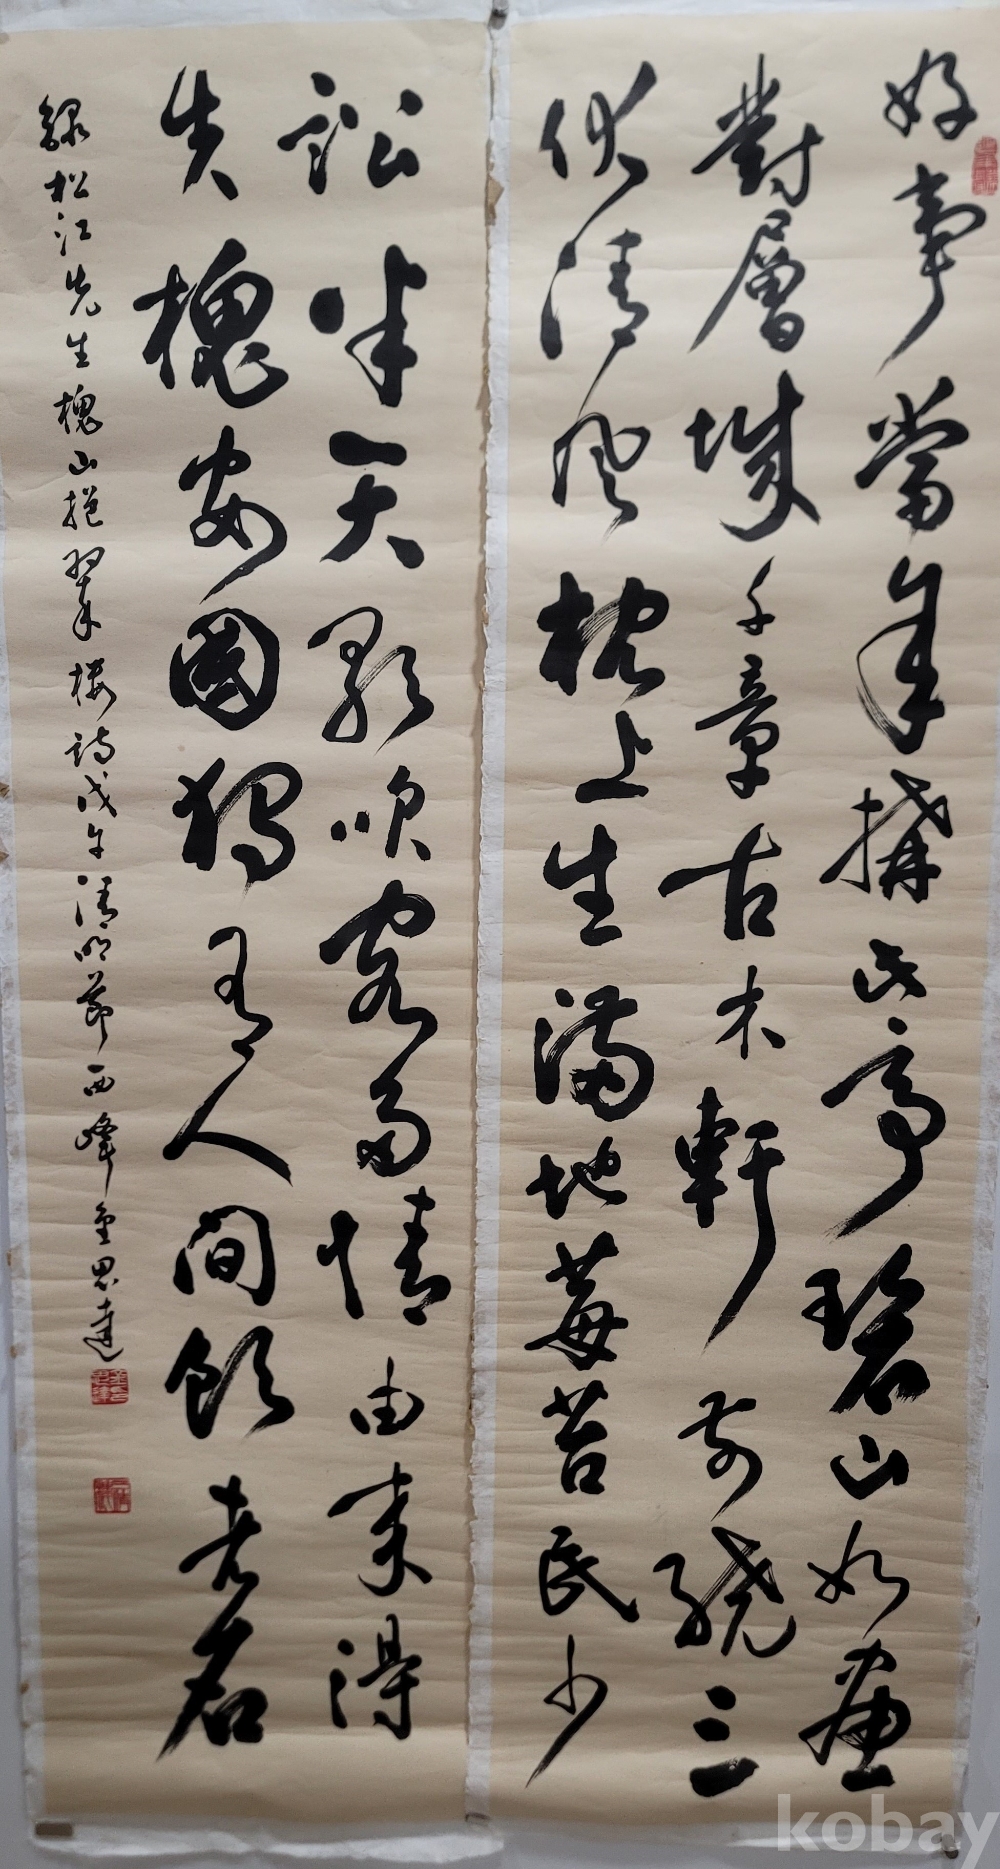 好事當年搆此亭碧山如畫
對層城千章古木軒前繞三
伏清風枕上生滿地莓苔民少
訟半天歌吹客多情由來得
失槐安國獨有人間飮者名
錄松江先生槐山挹翠樓詩戊午清明節西峰金思達
kobay